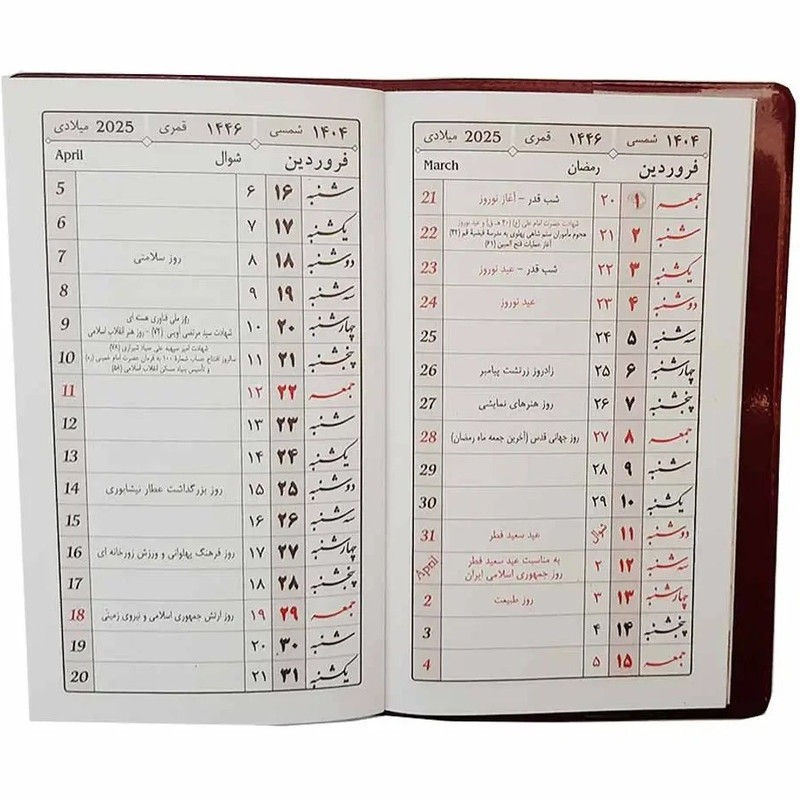 ۱۴۰۴ شمسی ۱۴۴۶ قمری 2025 میلادی
فروردین رمضان March
جمعه ۱ ۲۰ شب قدر - آغاز نوروز 21
شنبه ۲ ۲۱ شهادت حضرت امام علی (ع) (۴۰ ه‍.ق) و عید نوروز
هجوم مأموران ستم‌شاهی پهلوی به مدرسهٔ فیضیهٔ قم (۴۲)
آغاز عملیات فتح المبین (۶۱) 22
یکشنبه ۳ ۲۲ شب قدر - عید نوروز 23
دوشنبه ۴ ۲۳ عید نوروز 24
سه‌شنبه ۵ ۲۴ 25
چهارشنبه ۶ ۲۵ زادروز زرتشت پیامبر 26
پنجشنبه ۷ ۲۶ روز هنرهای نمایشی 27
جمعه ۸ ۲۷ روز جهانی قدس (آخرین جمعه ماه رمضان) 28
شنبه ۹ ۲۸ 29
یکشنبه ۱۰ ۲۹ 30
دوشنبه ۱۱ شوال عید سعید فطر 31
سه‌شنبه ۱۲ ۲ به مناسبت عید سعید فطر
روز جمهوری اسلامی ایران April
چهارشنبه ۱۳ ۳ روز طبیعت 2
پنجشنبه ۱۴ ۴ 3
جمعه ۱۵ ۵ 4
۱۴۰۴ شمسی ۱۴۴۶ قمری 2025 میلادی
فروردین شوال April
شنبه ۱۶ ۶ 5
یکشنبه ۱۷ ۷ 6
دوشنبه ۱۸ ۸ روز سلامتی 7
سه‌شنبه ۱۹ ۹ 8
چهارشنبه ۲۰ ۱۰ روز ملی فناوری هسته ای
شهادت سید مرتضی آوینی (۷۲) - روز هنر انقلاب اسلامی 9
پنجشنبه ۲۱ ۱۱ شهادت امیر سپهبد علی صیاد شیرازی (۷۸)
سالروز افتتاح حساب شمارهٔ ۱۰۰ به فرمان حضرت امام خمینی (ره)
و تأسیس بنیاد مسکن انقلاب اسلامی (۵۸) 10
جمعه ۲۲ ۱۲ 11
شنبه ۲۳ ۱۳ 12
یکشنبه ۲۴ ۱۴ 13
دوشنبه ۲۵ ۱۵ روز بزرگداشت عطار نیشابوری 14
سه‌شنبه ۲۶ ۱۶ 15
چهارشنبه ۲۷ ۱۷ روز فرهنگ پهلوانی و ورزش زورخانه ای 16
پنجشنبه ۲۸ ۱۸ 17
جمعه ۲۹ ۱۹ روز ارتش جمهوری اسلامی و نیروی زمینی 18
شنبه ۳۰ ۲۰ 19
یکشنبه ۳۱ ۲۱ 20